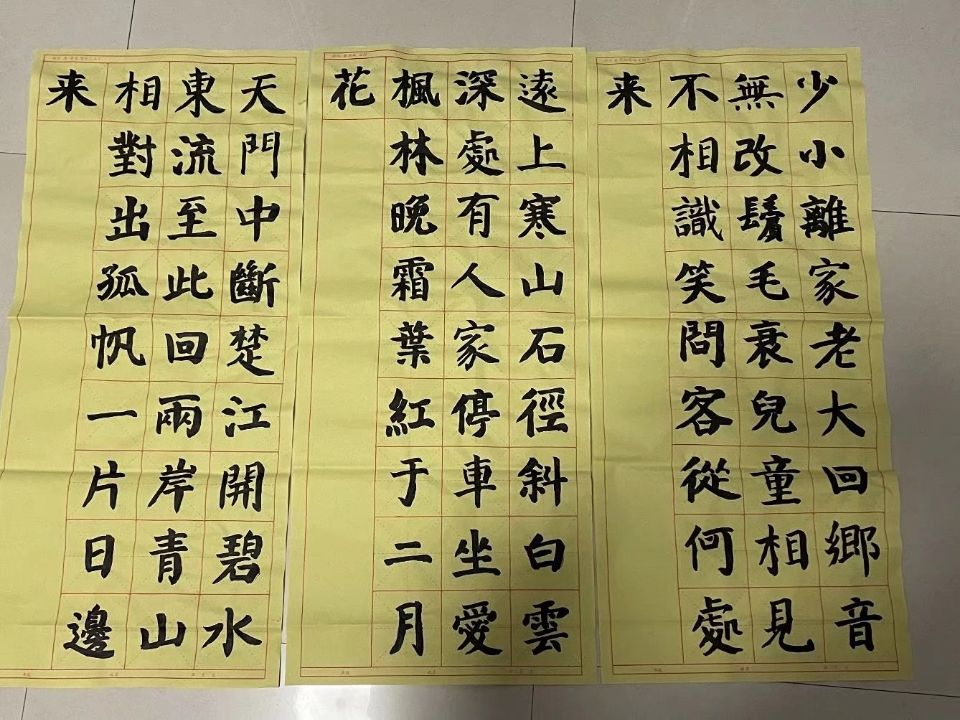 少小離家老大回鄉音
無改鬢毛衰兒童相見
不相識笑問客從何處
来
遠上寒山石徑斜白雲
深處有人家停車坐愛
楓林晚霜葉紅于二月
花
天門中斷楚江開碧水
東流至此回兩岸青山
相對出孤帆一片日邊
来